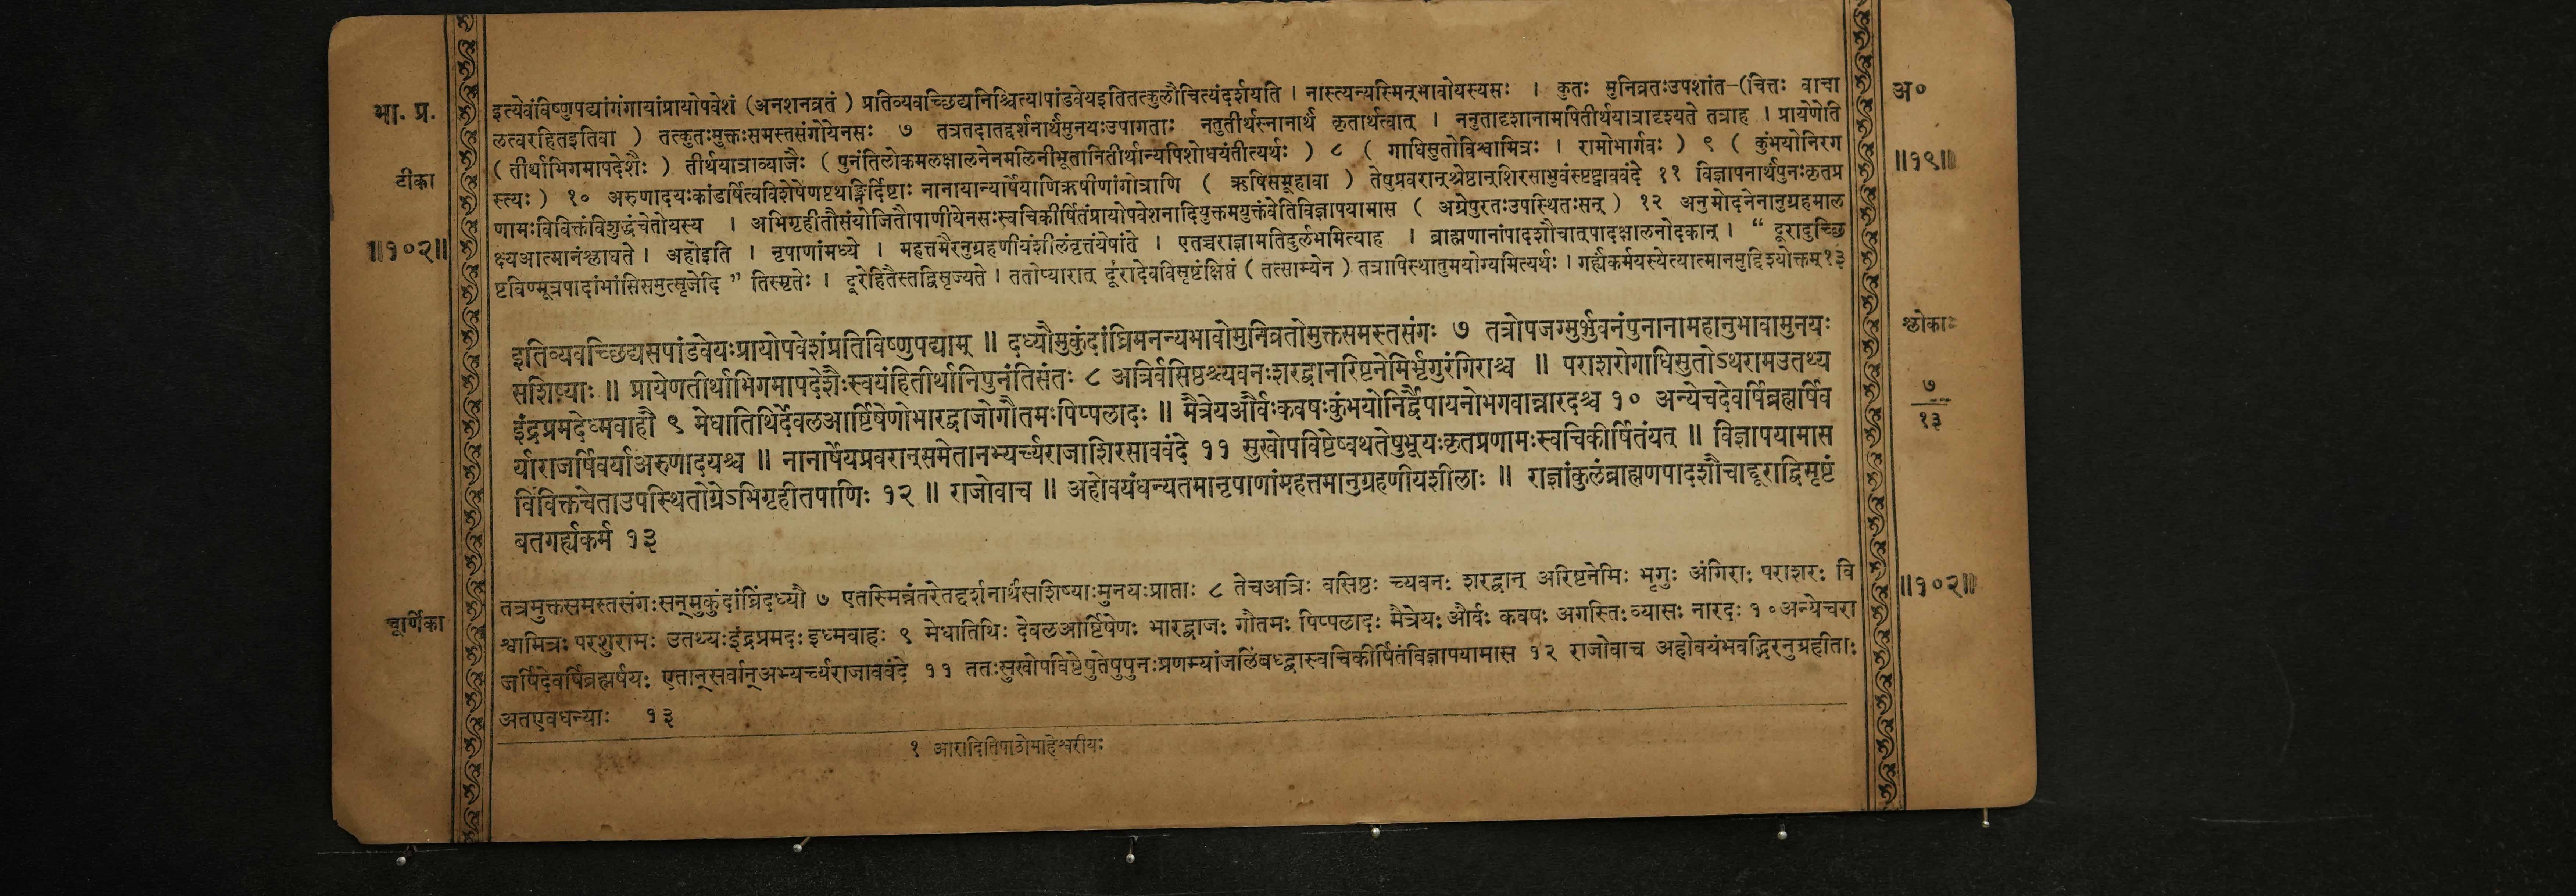 भा. प्र.
टीका
॥१०२॥
इत्येवंविष्णुपद्यांगंगायांप्रायोपवेशं (अनशनव्रतं ) प्रतिव्यवच्छिद्यनिश्चित्य।पांडवेयइतितत्कुलौचित्यंदर्शयति । नास्त्यन्यस्मिन्भावोयस्यसः । कुतः मुनिव्रतःउपशांत-(चित्तः वाचा
लत्वरहितइतिवा ) तत्कुतःमुक्तःसमस्तसंगोयेनसः ७ तत्रतदातद्दर्शनार्थंमुनयःउपागताः नतुतीर्थस्नानार्थं कृतार्थत्वात् । ननुतादृशानामपितीर्थयात्रादृश्यते तत्राह । प्रायेणेति
( तीर्थाभिगमापदेशैः ) तीर्थयात्राव्याजैः ( पुनंतिलोकमलक्षालनेनमलिनीभूतानितीर्थान्यपिशोधयंतीत्यर्थः ) ८ ( गाधिसुतोविश्वामित्रः । रामोभार्गवः ) ९ ( कुंभयोनिरग
स्त्यः ) १० अरुणादयःकांडर्षित्वविशेषेणपृथङ्निर्दिष्टाः नानायान्यार्षेयाणिऋषीणांगोत्राणि ( ऋषिसमूहावा ) तेषुप्रवरान्श्रेष्ठान्शिरसाभुवंस्पृष्ट्वाववंदे ११ विज्ञापनार्थंपुनःकृतप्र
णामःविविक्तंविशुद्धंचेतोयस्य । अभिगृहीतौसंयोजितौपाणीयेनसःस्वचिकीर्षितंप्रायोपवेशनादियुक्तमयुक्तंवेतिविज्ञापयामास ( अग्रेपुरतःउपस्थितःसन् ) १२ अनुमोदनेनानुग्रहमाल
क्ष्यआत्मानंश्लाघते । अहोइति । नृपाणांमध्ये । महत्तमैरनुग्रहणीयंशीलंवृत्तंयेषांते । एतच्चराज्ञामतिदुर्लभमित्याह । ब्राह्मणानांपादशौचात्पादक्षालनोदकान् । “ दूरादुच्छि
ष्टविण्मूत्रपादांभांसिसमुत्सृजेदि ” तिस्मृतेः । दूरेहितैस्तद्विसृज्यते । ततोप्यारात् दूरादेवविसृष्टंक्षिप्तं ( तत्साम्येन ) तत्रापिस्थातुमयोग्यमित्यर्थः । गर्ह्यंकर्मयस्येत्यात्मानमुद्दिश्योक्तम् १३
इतिव्यवच्छिद्यसपांडवेयःप्रायोपवेशंप्रतिविष्णुपद्याम् ॥ दध्यौमुकुंदांघ्रिमनन्यभावोमुनिव्रतोमुक्तसमस्तसंगः ७ तत्रोपजग्मुर्भुवनंपुनानामहानुभावामुनयः
सशिष्याः ॥ प्रायेणतीर्थाभिगमापदेशैःस्वयंहितीर्थानिपुनंतिसंतः ८ अत्रिर्वसिष्ठश्च्यवनःशरद्वानरिष्टनेमिर्भृगुरंगिराश्च ॥ पराशरोगाधिसुतोऽथरामउतथ्य
इंद्रप्रमदेध्मवाहौ ९ मेधातिथिर्देवलआर्ष्टिषेणोभारद्वाजोगौतमःपिप्पलादः ॥ मैत्रेयऔर्वःकवषःकुंभयोनिर्द्वैपायनोभगवान्नारदश्च १० अन्येचदेवर्षिब्रह्मर्षिव
र्याराजर्षिवर्याअरुणादयश्च ॥ नानार्षेयप्रवरान्समेतानभ्यर्च्यराजाशिरसाववंदे ११ सुखोपविष्टेष्वथतेषुभूयःकृतप्रणामःस्वचिकीर्षितंयत् ॥ विज्ञापयामास
विविक्तचेताउपस्थितोग्रेऽभिगृहीतपाणिः १२ ॥ राजोवाच ॥ अहोवयंधन्यतमानृपाणांमहत्तमानुग्रहणीयशीलाः ॥ राज्ञांकुलंब्राह्मणपादशौचाद्दूराद्विसृष्टं
बतगर्ह्यकर्म १३
चूर्णिका
तत्रमुक्तसमस्तसंगःसन्मुकुंदांघ्रिंदध्यौ ७ एतस्मिन्नंतरेतद्दर्शनार्थंसशिष्याःमुनयःप्राप्ताः ८ तेचआत्रिः वसिष्ठः च्यवनः शरद्वान् अरिष्टनेमिः भृगुः अंगिराः पराशरः वि
श्वामित्रः परशुरामः उतथ्यःइंद्रप्रमदः इध्मवाहः ९ मेधातिथिः देवलआर्ष्टिषेणः भारद्वाजः गौतमः पिप्पलादः मैत्रेयः और्वः कवषः अगस्तिः व्यासः नारदः १०अन्येचरा
जर्षिदेवर्षिब्रह्मर्षयः एतान्सर्वान्अभ्यर्च्यराजाववंदे ११ ततःसुखोपविष्टेषुतेषुपुनःप्रणम्यांजलिंबध्द्वास्वचिकीर्षितंविज्ञापयामास १२ राजोवाच अहोवयंभवद्भिरनुग्रहीताः
अतएवधन्याः १३
१ आरादितिपाठोमाहेश्वरीयः
अ०
॥१९॥
श्लोकाः
७
१३
॥१०२॥